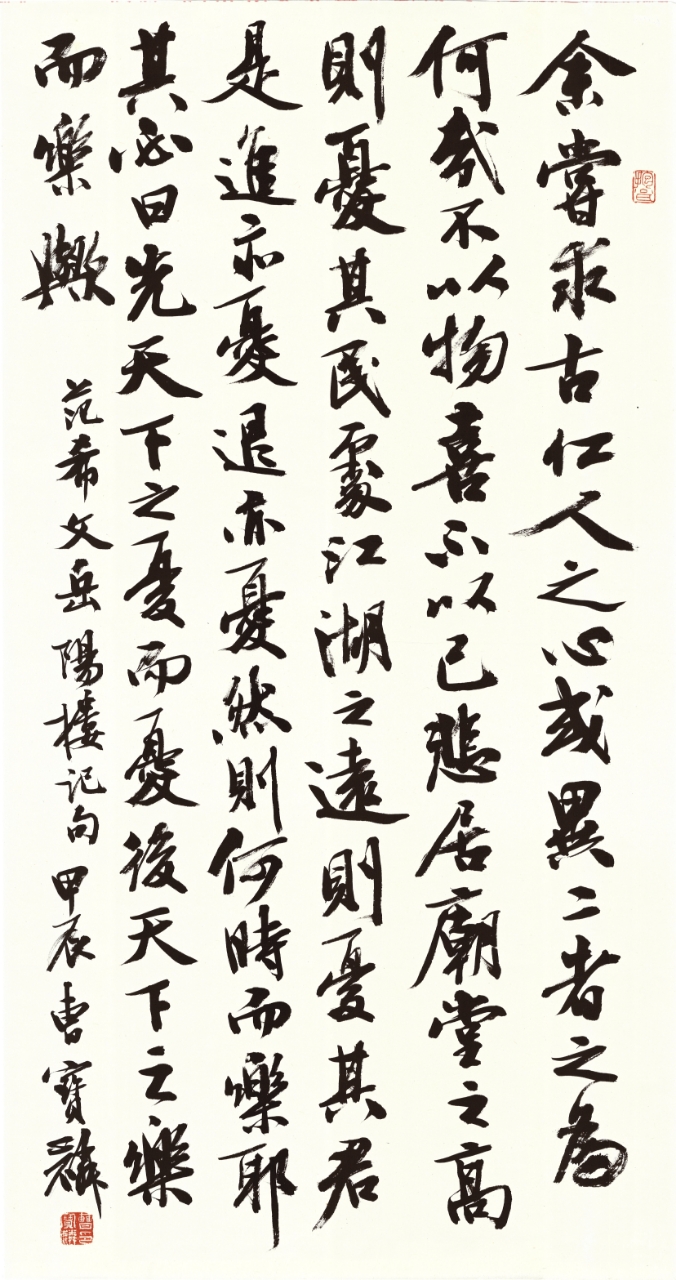 余嘗求古仁人之心或異二者之為
何哉不以物喜不以己悲居廟堂之高
則憂其民處江湖之遠則憂其君
是進亦憂退亦憂然則何時而樂耶
其必曰先天下之憂而憂後天下之樂
而樂歟
范希文岳陽樓記句 甲辰 曹寶麟